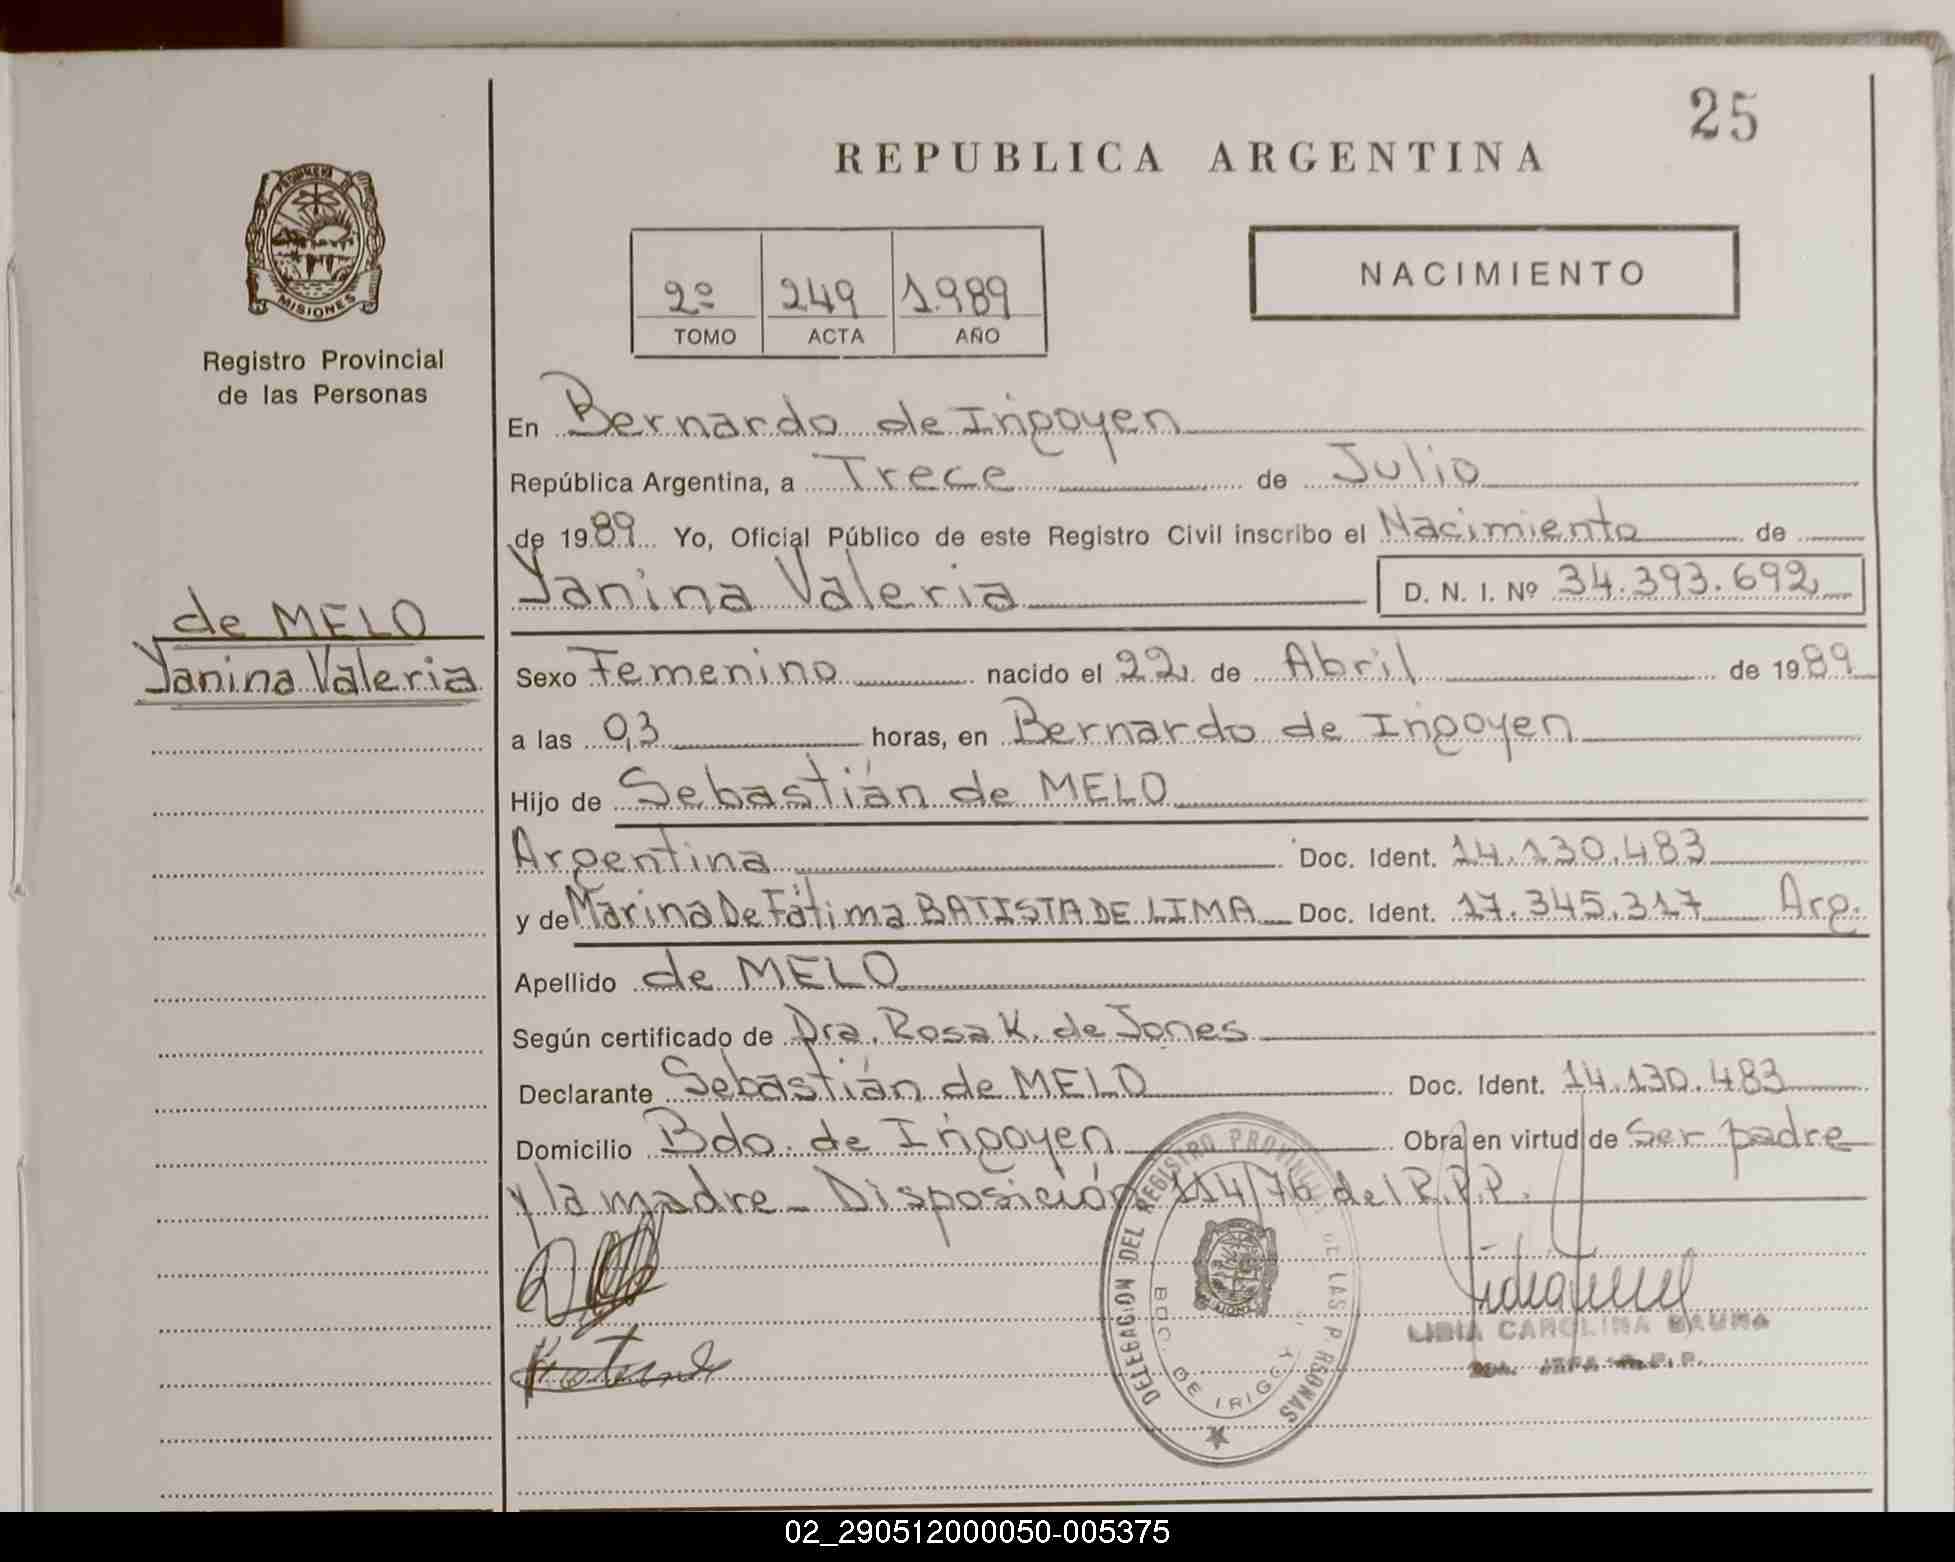 25
REPUBLICA ARGENTINA
MISIONES
Registro Provincial
de las Personas
2º 249 1.989
TOMO ACTA AÑO
NACIMIENTO
En Bernardo de Irigoyen
República Argentina, a Trece de Julio
de 1989 Yo, Oficial Público de este Registro Civil inscribo el Nacimiento de
Yanina Valeria D. N. I. Nº 34.393.692
de MELO
Yanina Valeria
Sexo Femenino nacido el 22 de Abril de 1989
a las 0,3 horas, en Bernardo de Irigoyen
Hijo de Sebastián de MELO
Argentina Doc. Ident. 14.130.483
y de Marina De Fátima BATISTA DE LIMA Doc. Ident. 17.345.317 Arg.
Apellido de MELO
Según certificado de Dra. Rosa K. de Jones
Declarante Sebastián de MELO Doc. Ident. 14.130.483
Domicilio Bdo. de Irigoyen Obra en virtud de Ser padre
y la madre - Disposición 114/76 del R.P.P.
DELEGACION DEL REGISTRO PROVINCIAL DE LAS PERSONAS
BDO. DE IRIGOYEN
LIDIA CAROLINA
02_290512000050-005375